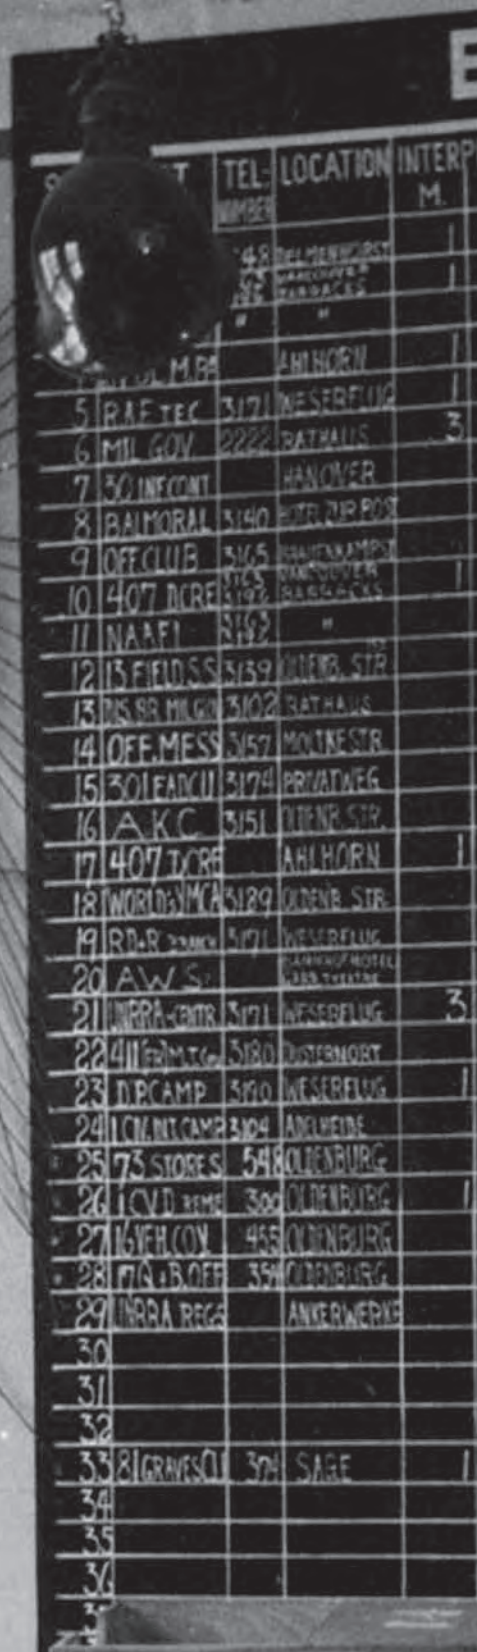 TEL- LOCATION INTERP
NUMBER M.
48 DELMENHORST 1
VANCOUVER 1
BARRACKS
" "
AHLHORN 1
5 R.A.F TEC 3171 WESERFLUG 1
6 MIL GOV 2222 RATHAUS 3
7 30 INF.CONT HANOVER
8 BALMORAL 3140 HOTEL ZUR POST
9 OFF.CLUB 3165
10 407 DCRE 3163 VANCOUVER 1
3196 BARRACKS
11 NAAFI 3163 "
12 13 FIELD S.S 3139 OLDENB. STR.
13 3102 RATHAUS
14 OFF.MESS 3157 MOLTKESTR.
15 3174 PRIVATWEG
16 A.K.C. 3151 OLDENB.STR.
17 407 DCRE AHLHORN 1
18 WORLD'S YMCA 3189 OLDENB. STR.
19 RD+R BRANCH 3171 WESERFLUG
20 A.W.S. BAHNHOFHOTEL
GARR.THEATRE
21 UNRRA-CENTR 3171 WESERFLUG 3
22 411 M.T.Coy 3180 DÜSTERNORT
23 D.P.CAMP 3190 WESERFLUG 1
24 1.CIV.INT.CAMP 3104 ADELHEIDE
25 73 STORES 548 OLDENBURG
26 1 CV.D REME 300 OLDENBURG 1
27 16 VEH.COY. 455 OLDENBURG
28 17 Q.+B.OFF 354 OLDENBURG
29 UNRRA REGS ANKERWERKE
30
31
32
33 81 GRAVES CU 374 SAGE 1
34
35
36